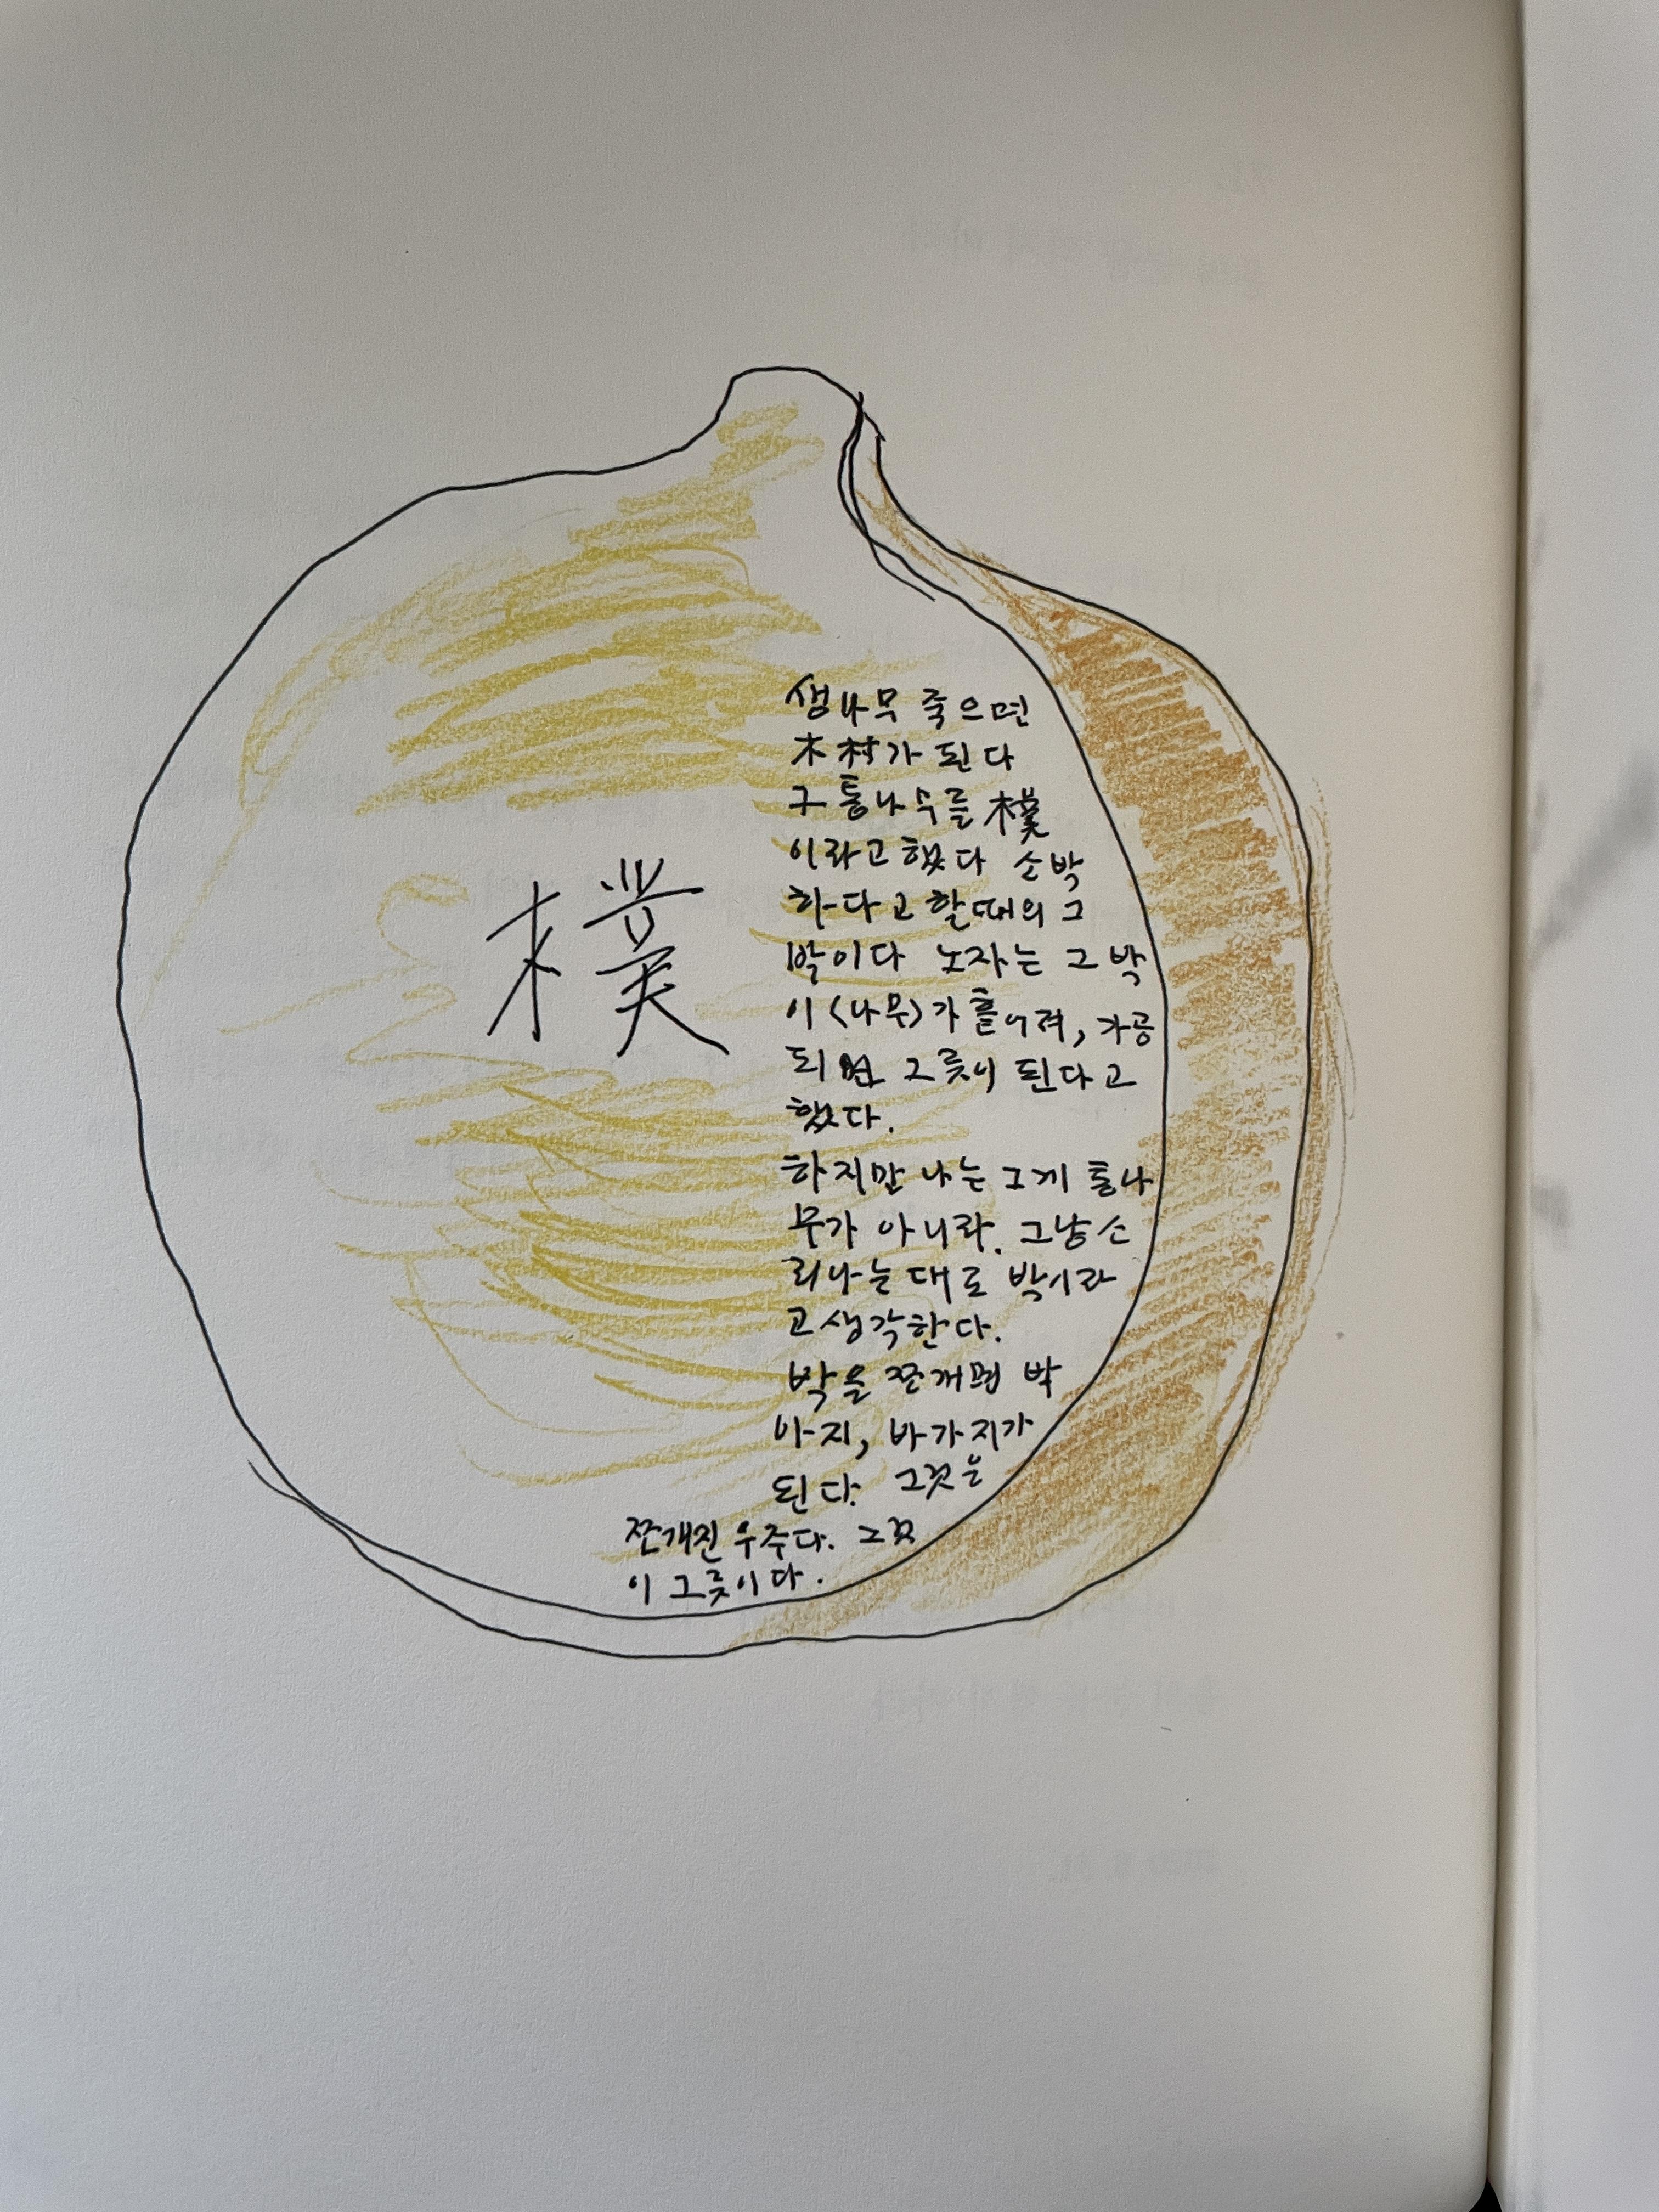 樸
생나무 죽으면
木材가 된다
그 통나무를 樸
이라고 했다 소박
하다고 할때의 그
박이다 노자는 그 박
이 〈나무〉가 흩어져, 가공
되면 그릇이 된다고
했다.
하지만 나는 그게 통나
무가 아니라. 그냥 소
리나는 대로 박이라
고 생각한다.
박을 쪼개면 박
아지, 바가지가
된다. 그것은
쪼개진 우주다. 그것
이 그릇이다.